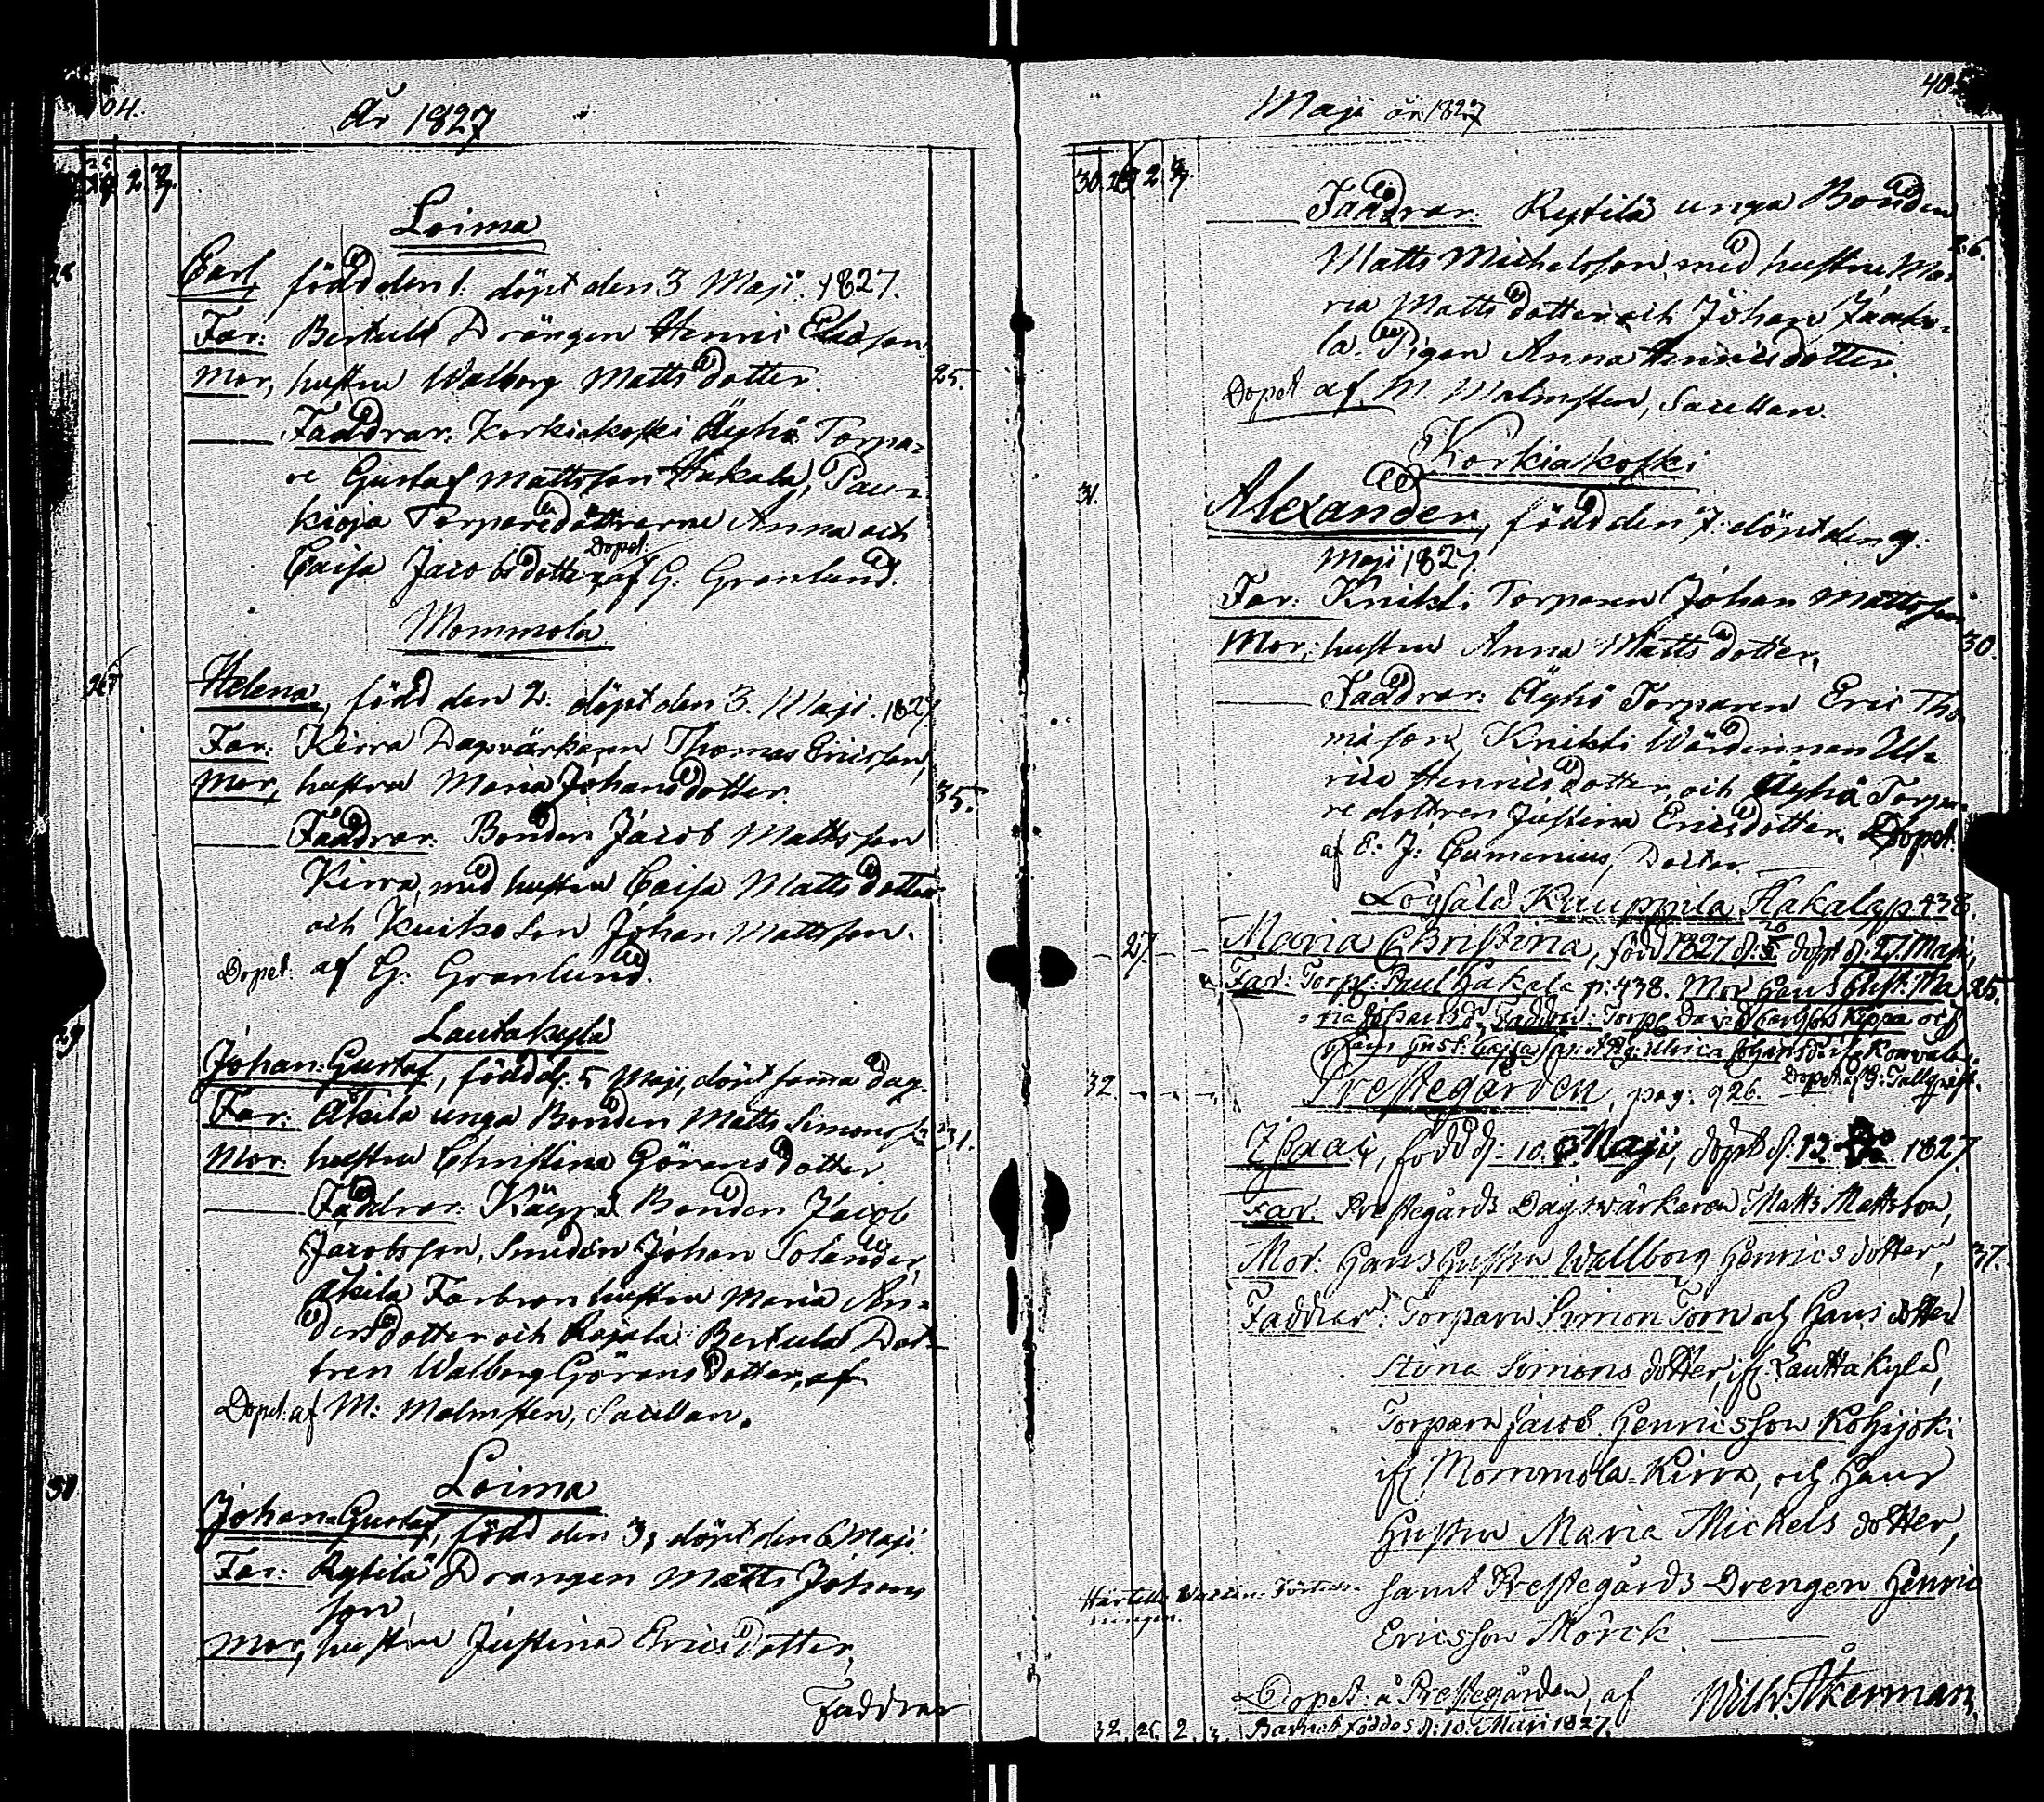 År 1827
2. 3.
Loima
28
Carl, född den 1. döpt den 3 Maji. 1827.
Far: Bertula Drängen Henric
Mor, hustru Walborg Mattsdotter. 25.
Faddrar: Korkiakoski Äyhö Torpa-
re Gustaf Mattsson Hakala, Pau-
kioja Torparedöttrarne Anna och
Caisa Jacobsdotter, Dopet: af G: Granlund.
Mommola
Helena, född den 2. döpt den 3. Maji. 1827
Far: Kirra Dagvärkaren Thomas Ericsson,
Mor, hustru Maria Johansdotter. 35.
Faddrar: Bonden Jacob Mattsson
Kirra, med hustru Caisa Mattsdotter
och Johan Mattsson.
Dopet: af G: Granlund.
Lautakylä
29
Johan Gustaf, född d: 5 Maji, döpt samma dag.
Far: Äkilä unga Bonden Matts Simonss: 31.
Mor: hustru Christina Göransdotter
Faddrar: Käyrä Bonden Jacob
Jacobsson, Smeden Johan Solander,
Äkilä Farbrors hustru Maria An-
dersdotter och Bertula Dot-
tren Walborg Göransdotter, af
Dopet: af M: Malmsten, Sacellan.
Loima
Johan Gustaf, född den 3, döpt den 6 Maji
Far: Rytilä Drängen Matts Johans
son,
Mor, hustru Justina Ericsdotter,
Faddrar
Maji år 1827
30. 2.
Faddrar: Rytilä unga Bonden
Matts Michelsson, med hustru Ma- 26.
ria Mattsdotter och Johan Jaako-
la. Pigan Anna Henricsdotter.
Dopet: af M. Malmsten, Sacellan.
Korkiakoski
31.
Alexander, född den 7. döpt den 9.
Maji 1827.
Far: Knihti Torparen Johan Mattsson
Mor: hustru Anna Mattsdotter, 30.
Faddrar: Äyhö Torparen Eric Tho-
masson, Knihti Wärdinnan Ul-
rica Henricsdotter, och Äyhö Torpa-
re dottren Justina Ericsdotter. Dopet
af E. J: Eumenius, Doctor.
Kauppila Hakala p 438.
27
Maria Christina, född 1827 d: döpt d: 27. Maji,
Far: Torp: Paul Hakala p: 438. Mor Hans Hust: Ma 25.
ria Johansd: Faddrar: Torp: David
Dopet af G: Tallqvist.
32.
Prestegården, pag: 926.
Isaac, född d: 10. Maji, döpt d: 13. 1827
Far: Prestegårds Dagsvärkaren Matts Mattsson,
Mor: Hans Hustru Wallborg Henricsdotter, 37.
Faddrar: Torparn Simon Torn och Hans dotter
Stina Simonsdotter, ifr: Lauttakylä,
Torparn Jacob Henricsson Kohijoki
ifr Mommola-Kirra, och Hans
Hustru Maria Michelsdotter,
samt Prestegårds Drengen Henric
Ericsson Mörck.
Dopet: å Prestegården, af Wilh: Åkerman,
32. 25. 2. 3. Barnet föddes d: 10. Maji 1827.